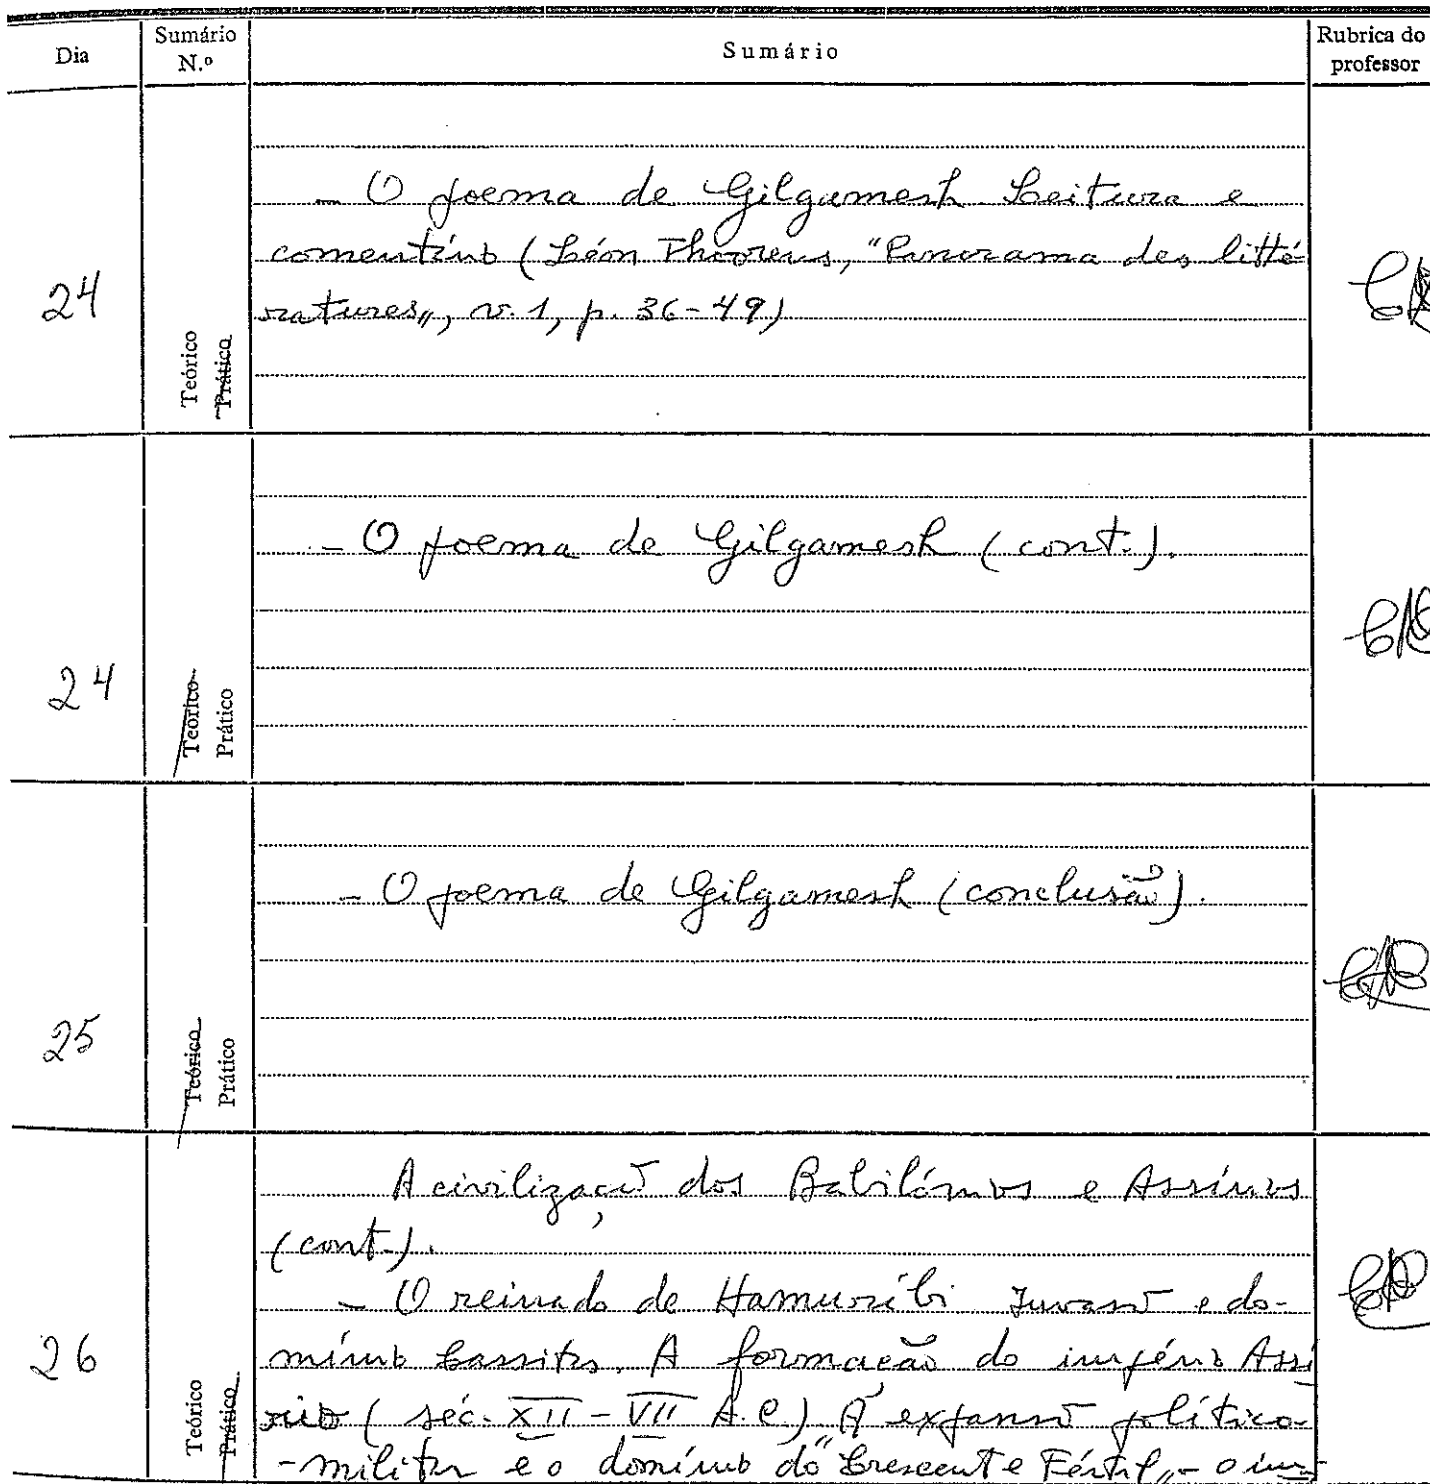 Dia
Sumário
N.º
Sumário
Rubrica do
professor
24
Teórico
Prático
- O poema de Gilgamesh. Leitura e
comentário (Léon Thoorens, "Panorama des litté
ratures", v. 1, p. 36-49)
24
Teórico
Prático
- O poema de Gilgamesh (cont.).
25
Teórico
Prático
- O poema de Gilgamesh (conclusão).
26
Teórico
Prático
A civilização dos Babilónios e Assírios
(cont.).
- O reinado de Hamurábi. Invasão e do-
mínio Cassitas. A formação do império Assí
rio (séc. XII - VII A.C.). A expansão político-
-militar e o domínio do "Crescente Fértil" - o im-